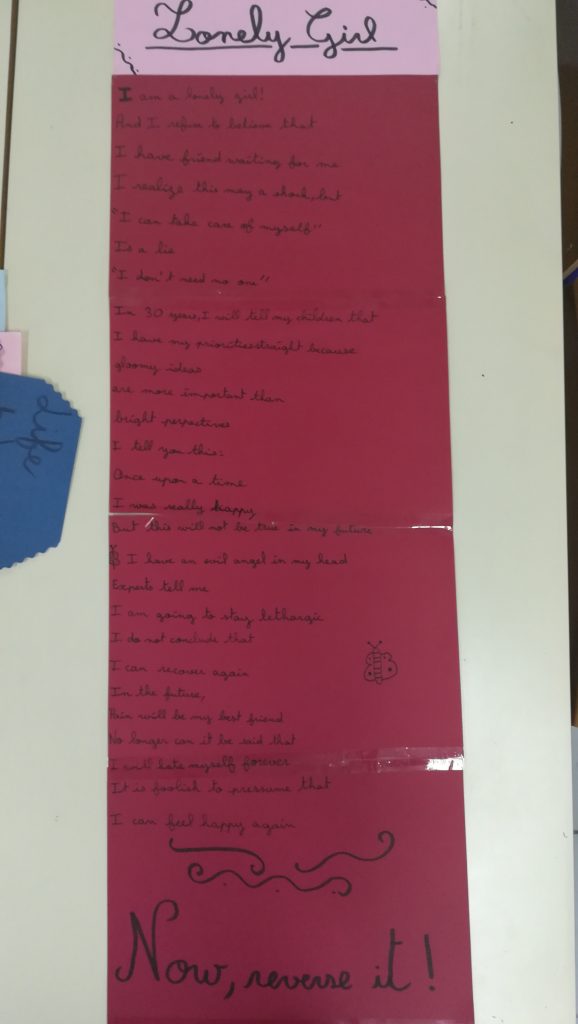 Lonely Girl
I am a lonely girl!
And I refuse to believe that
I have friend waiting for me
I realize this may a shock, but
"I can take care of myself"
Is a lie
"I don't need no one"
In 30 years, I will tell my children that
I have my priorities straight because
gloomy ideas
are more important than
bright perspectives
I tell you this:
Once upon a time
I was really happy
But this will not be true in my future
I have an evil angel in my head
Experts tell me
I am going to stay lethargic
I do not conclude that
I can recover again
In the future,
Pain will be my best friend
No longer can it be said that
I will hate myself forever
It is foolish to pressume that
I can feel happy again
Now, reverse it!
Life